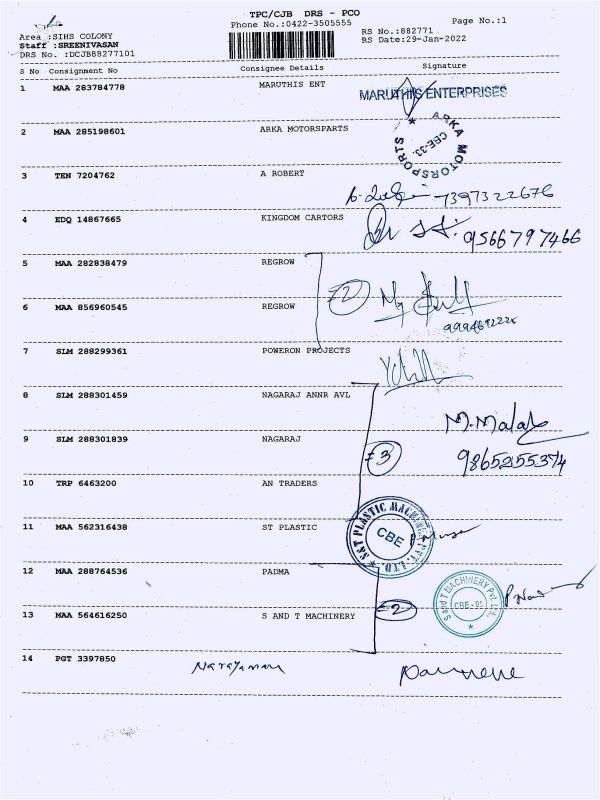 TPC/CJB DRS - PCO
Phone No.:0422-3505555
Page No.:1
Area :SIHS COLONY
Staff :SREENIVASAN
DRS No. :DCJB88277101
RS No.:882771
RS Date:29-Jan-2022
S No Consignment No Consignee Details Signature
1 MAA 283784778 MARUTHIS ENT MARUTHIS ENTERPRISES
2 MAA 285198601 ARKA MOTORSPARTS ARKA MOTORSPORTS CBE-33.
3 TEN 7204762 A ROBERT 7397322676
4 EDQ 14867665 KINGDOM CARTORS 9566797466
5 MAA 282838479 REGROW
=2
6 MAA 856960545 REGROW
7 SLM 288299361 POWERON PROJECTS
8 SLM 288301459 NAGARAJ ANNR AVL
M. Malar
9 SLM 288301839 NAGARAJ =3 9865255374
10 TRP 6463200 AN TRADERS
11 MAA 562316438 ST PLASTIC S&T PLASTIC MACHINES PVT. LTD. CBE
12 MAA 288764536 PADMA
13 MAA 564616250 S AND T MACHINERY =2 S and T MACHINERY Pvt. Ltd. CBE - 05
14 PGT 3397850 Narayanan